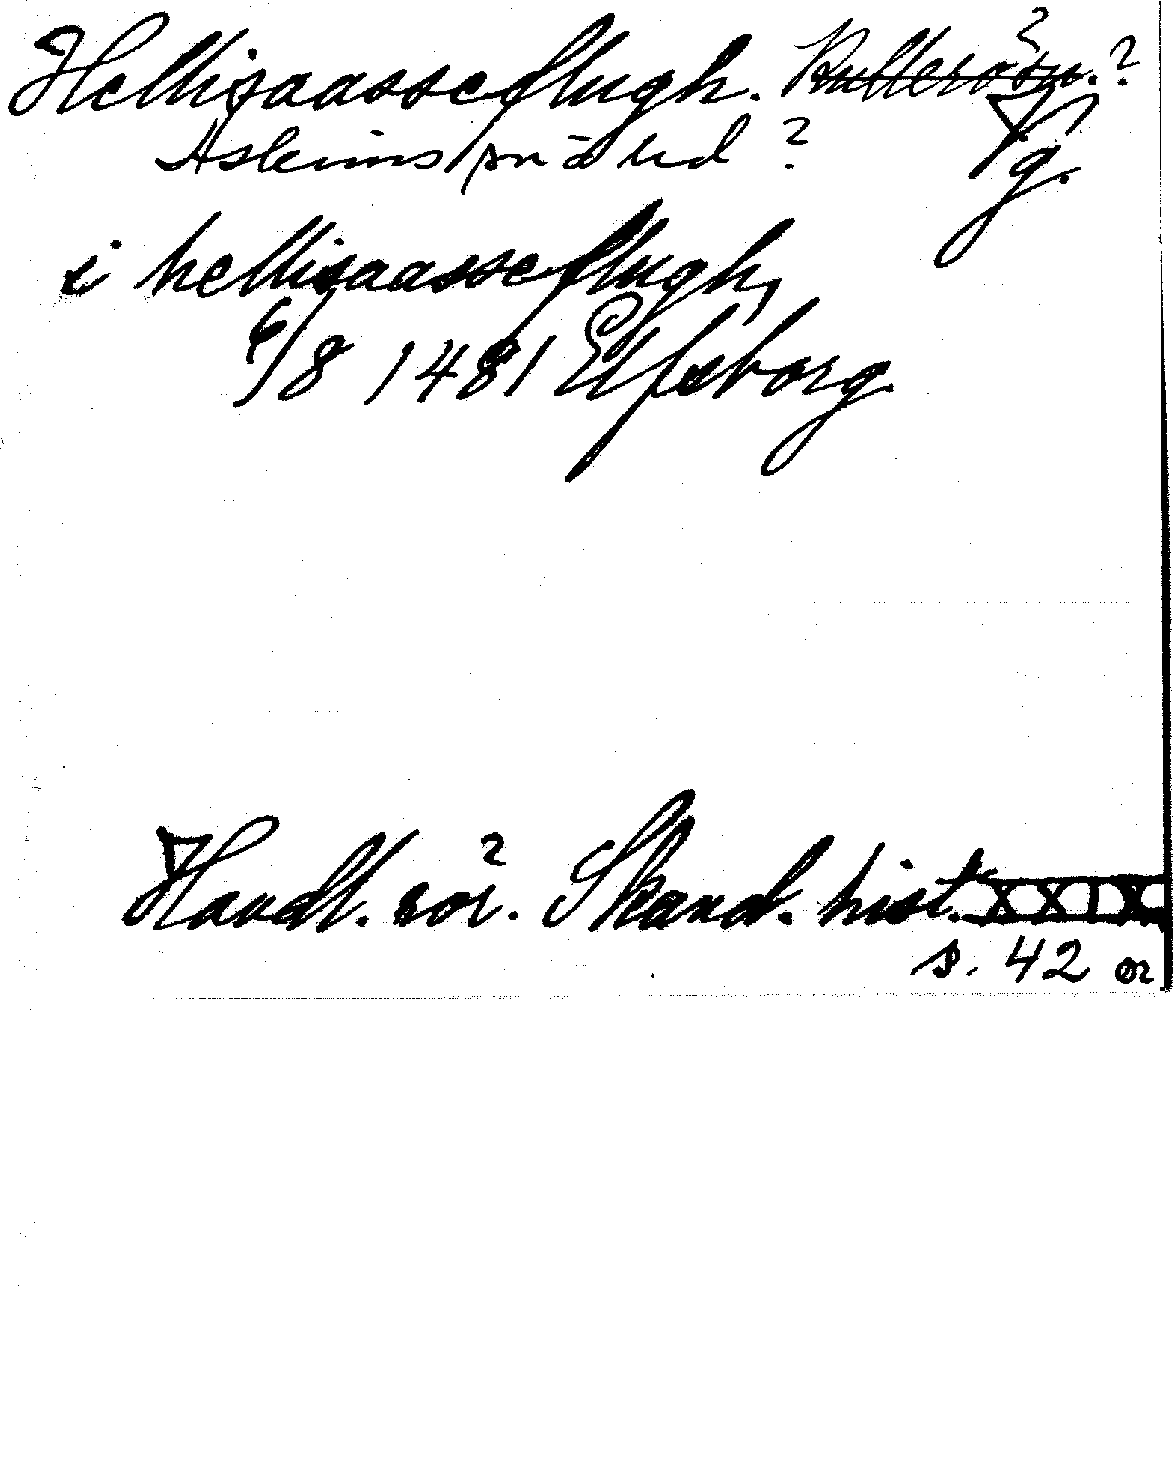 Hellisaasseflugh. Kullerösu.?
Askims sn o hd ? Vg.
i hellisaasseflugh,
6/8 1481 Elfsborg.
Handl. rör. Skand. hist. XXIX
s. 42